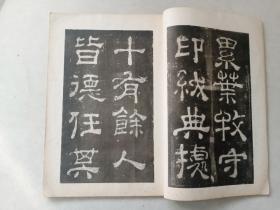 累葉牧守
印紱典據
十有餘人
皆德任其